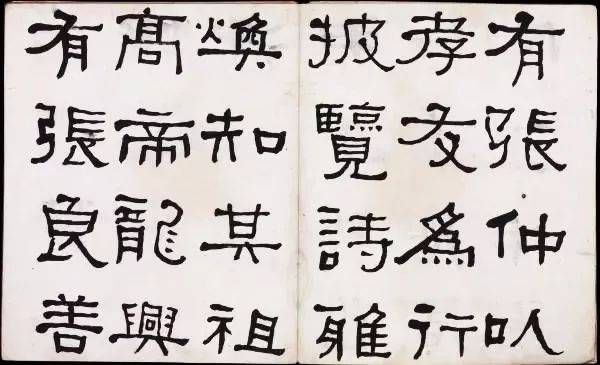 有張仲以
孝友爲行
披覽詩雅
煥知其祖
高帝龍興
有張良善